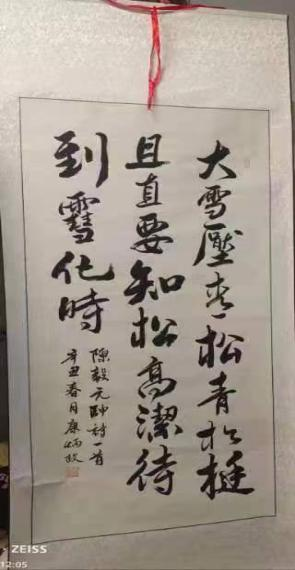 大雪壓青松青松挺
且直要知松高潔待
到雪化時
陳毅元帥詩一首
辛丑春月康炳
ZEISS
12:05